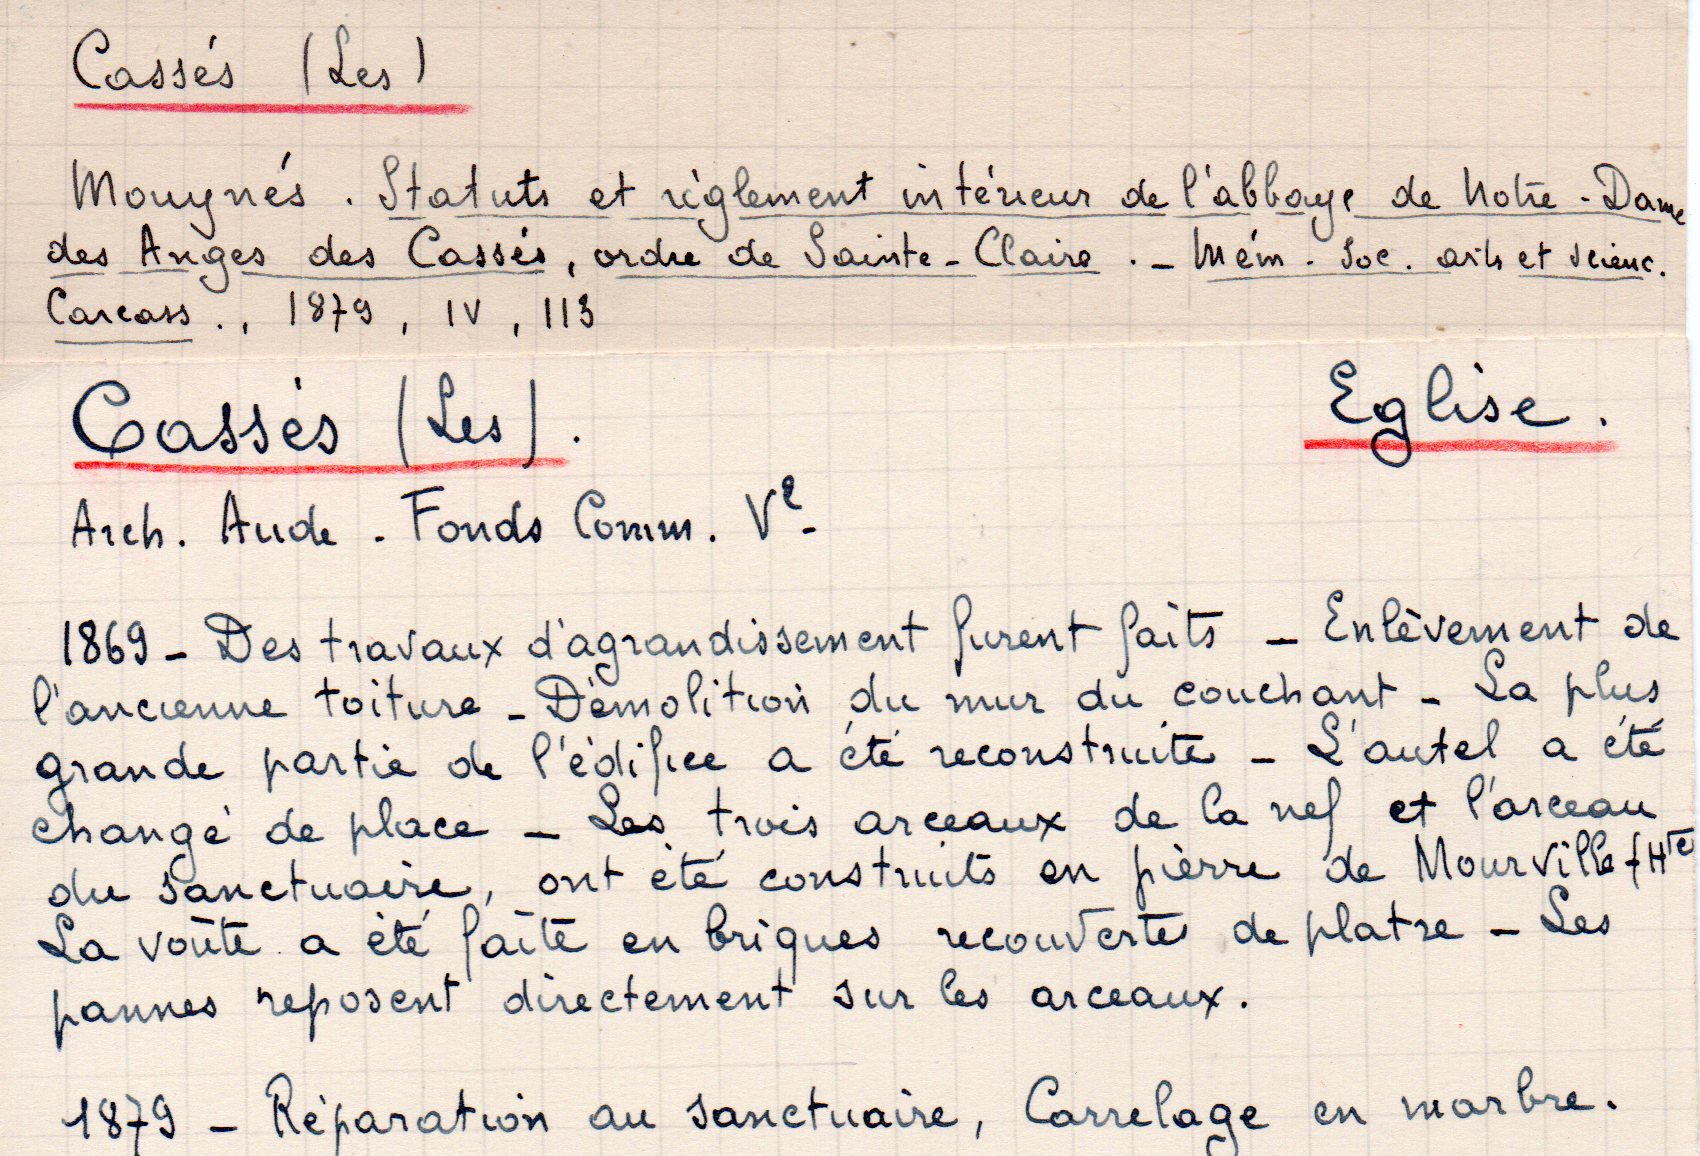 Cassés (Les)
Mouynés. Statuts et règlement intérieur de l'abbaye de Notre-Dame
des Anges des Cassés, ordre de Sainte-Claire. - Mém. Soc. arts et scienc.
Carcass., 1879, IV, 113
Cassés (Les). Eglise.
Arch. Aude - Fonds Comm. V²-
1869 - Des travaux d'agrandissement furent faits - Enlèvement de
l'ancienne toiture - Démolition du mur du couchant - La plus
grande partie de l'édifice a été reconstruite - L'autel a été
changé de place - Les trois arceaux de la nef et l'arceau
du sanctuaire, ont été construits en pierre de Mourville-Hte
La voûte a été faite en briques recouvertes de platre - Les
pannes reposent directement sur les arceaux.
1879 - Réparation au sanctuaire, Carrelage en marbre.